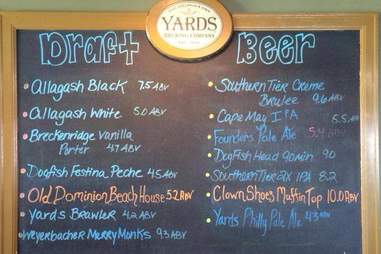 YARDS
BREWING COMPANY
Draft Beer
Allagash Black 7.5 ABV
Allagash White 5.0 ABV
Breckenridge Vanilla
Porter 4.7 ABV
Dogfish Festina Peche 4.5 ABV
Old Dominion Beach House 5.2 ABV
Yards Brawler 4.2 ABV
Weyerbacher Merry Monks 9.3 ABV
Southern Tier Creme
Brulee 9.6 ABV
Cape May IPA 5.5
Founders Pale Ale 5.4 ABV
Dogfish Head 90 min 9.0
Southern Tier 2X IPA 8.2
Clown Shoes Muffin Top 10.0 ABV
Yards Philly Pale Ale 4.3 ABV